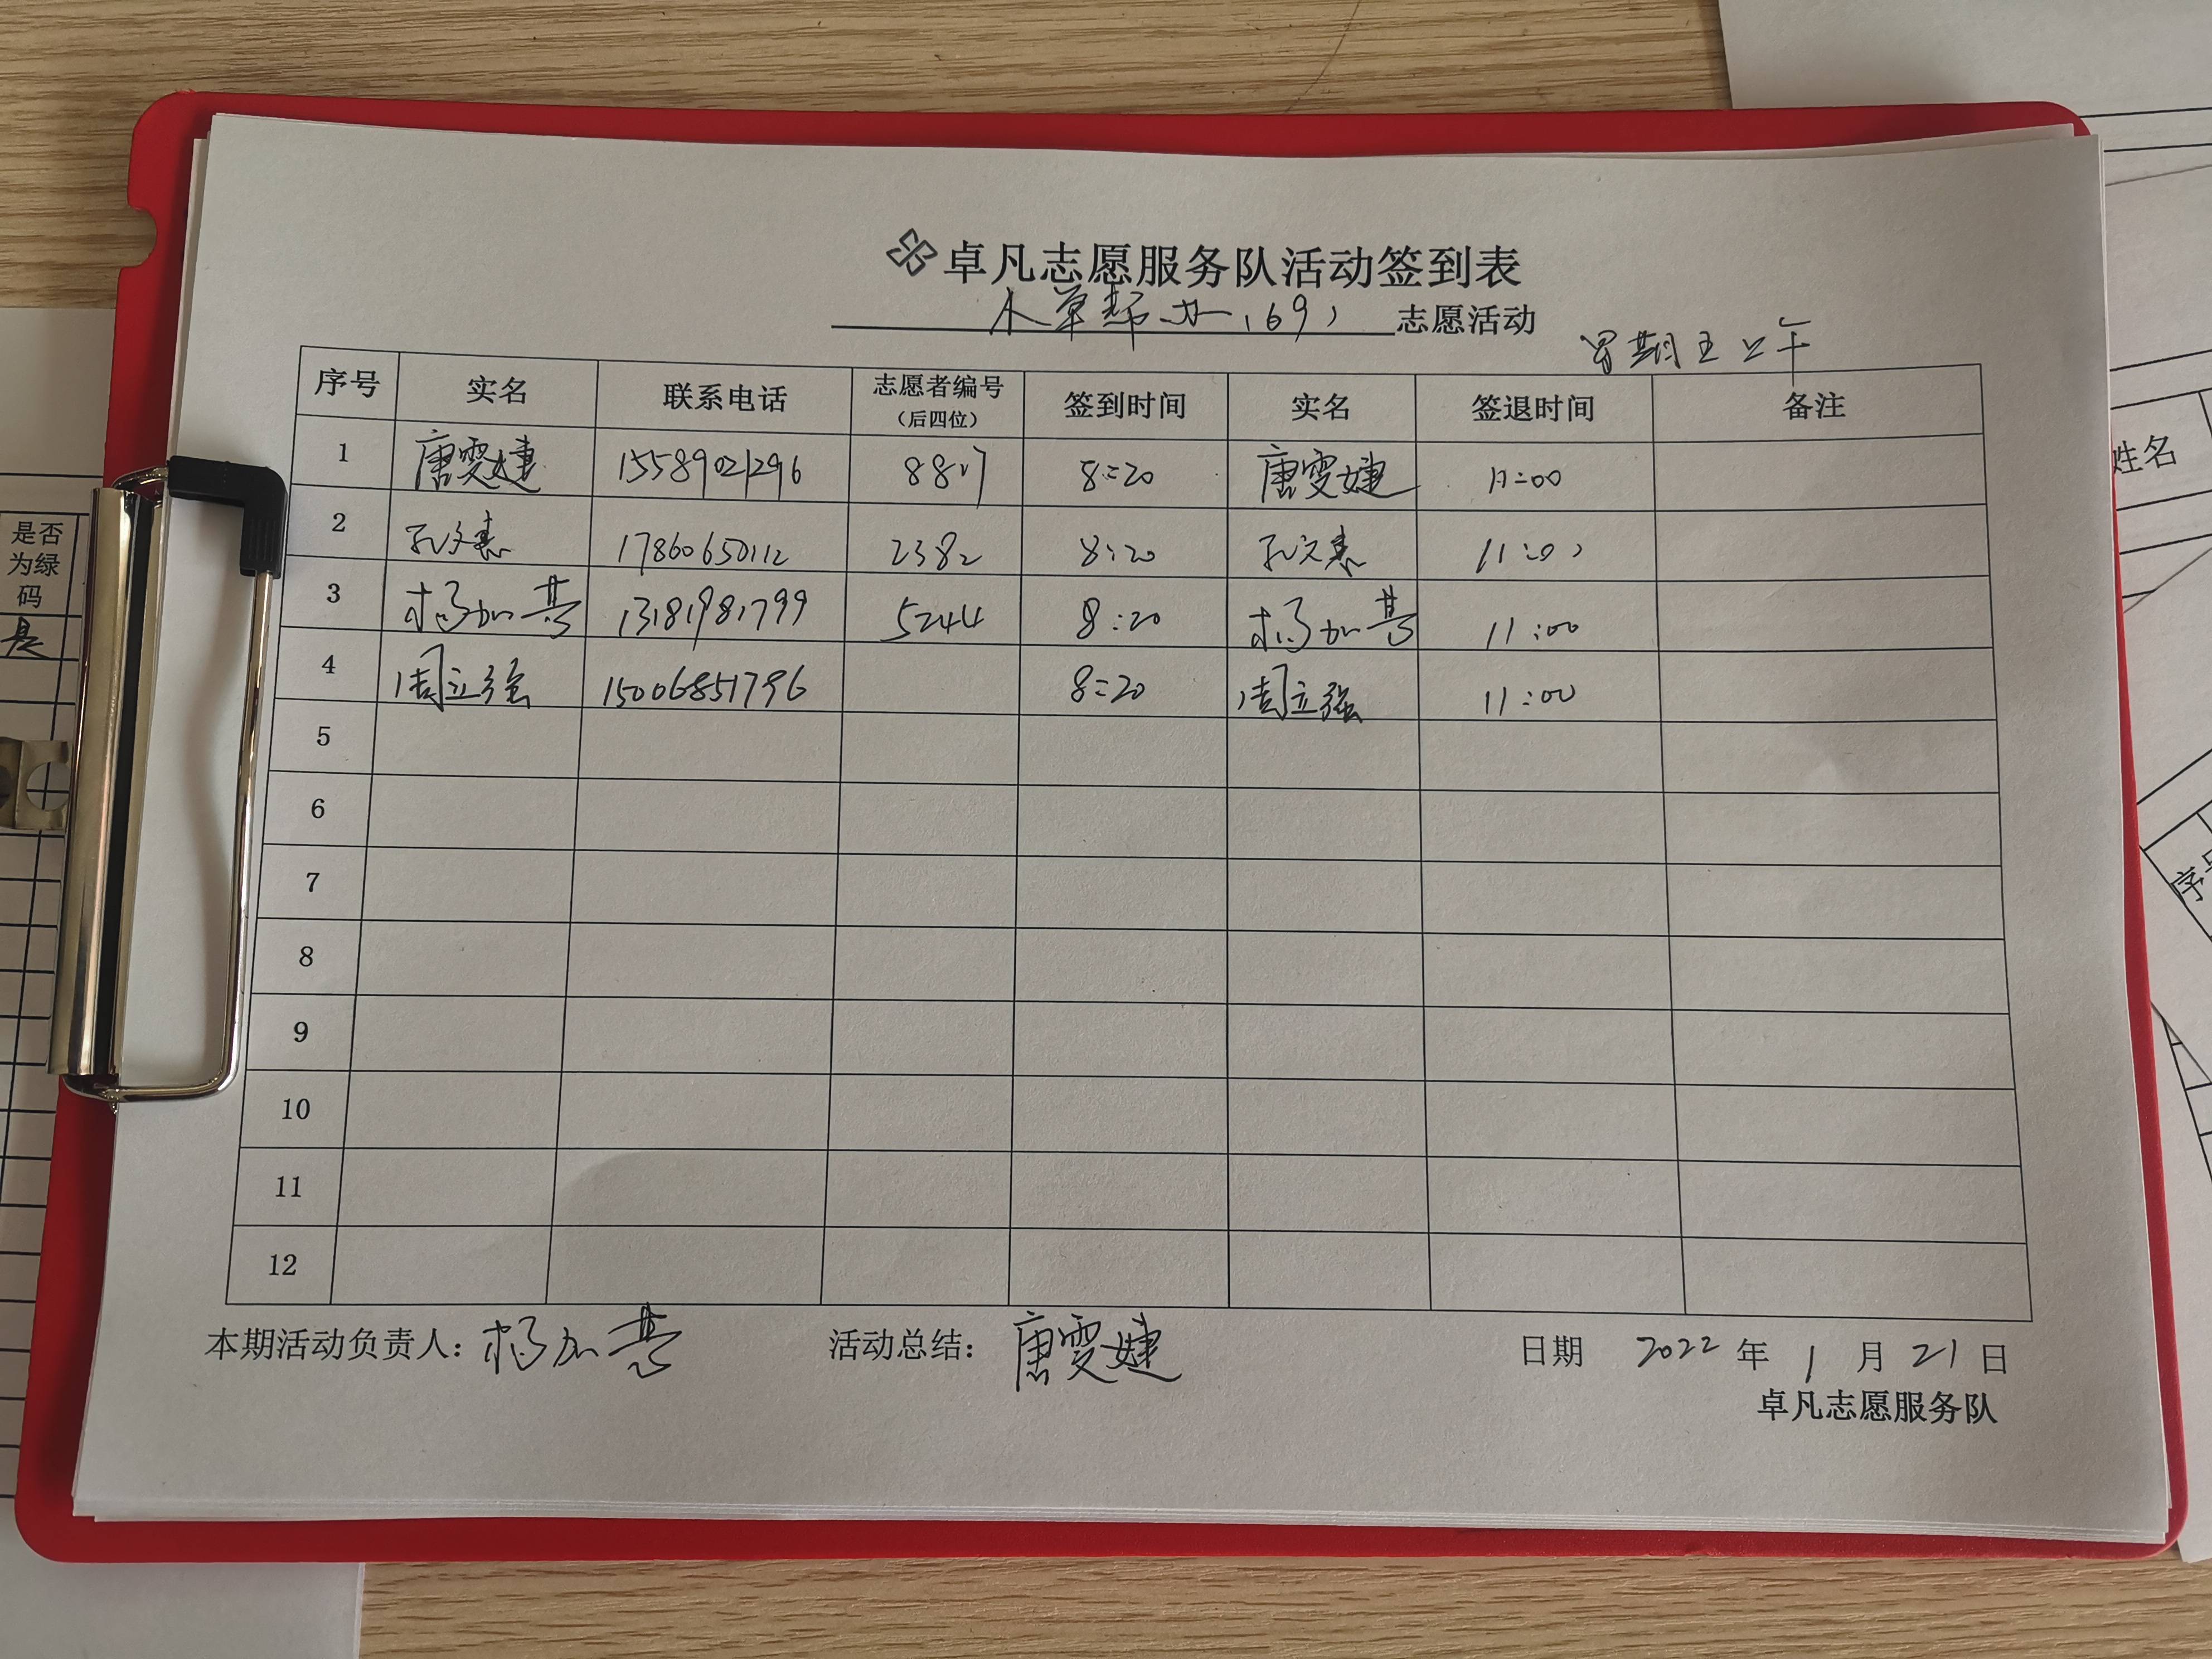 卓凡志愿服务队活动签到表
木草帮办(69) 志愿活动
星期五上午
序号 实名 联系电话 志愿者编号(后四位) 签到时间 实名 签退时间 备注
1 唐雯婕 15589021296 8:20 唐雯婕 11:00
2 孔文惠 17860650112 2382 8:20 孔文惠 11:00
3 杨加 13181981799 5244 8:20 杨加 11:00
4 周立强 15006851796 8:20 周立强 11:00
5
6
7
8
9
10
11
12
本期活动负责人: 杨加 活动总结: 唐雯婕 日期 2022 年 1 月 21 日
卓凡志愿服务队
是否
为绿
码
是
姓名
序号